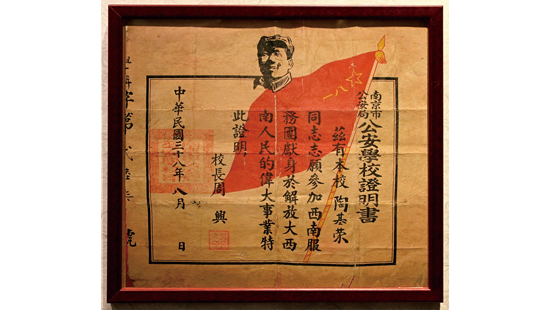 南京市公安局
公安學校證明書
茲有本校 陶基荣
同志志願參加西南服
務團獻身於解放大西
南人民的偉大事業特
此證明
校長周興
中華民國三十八年八月 日
字第
號
八一